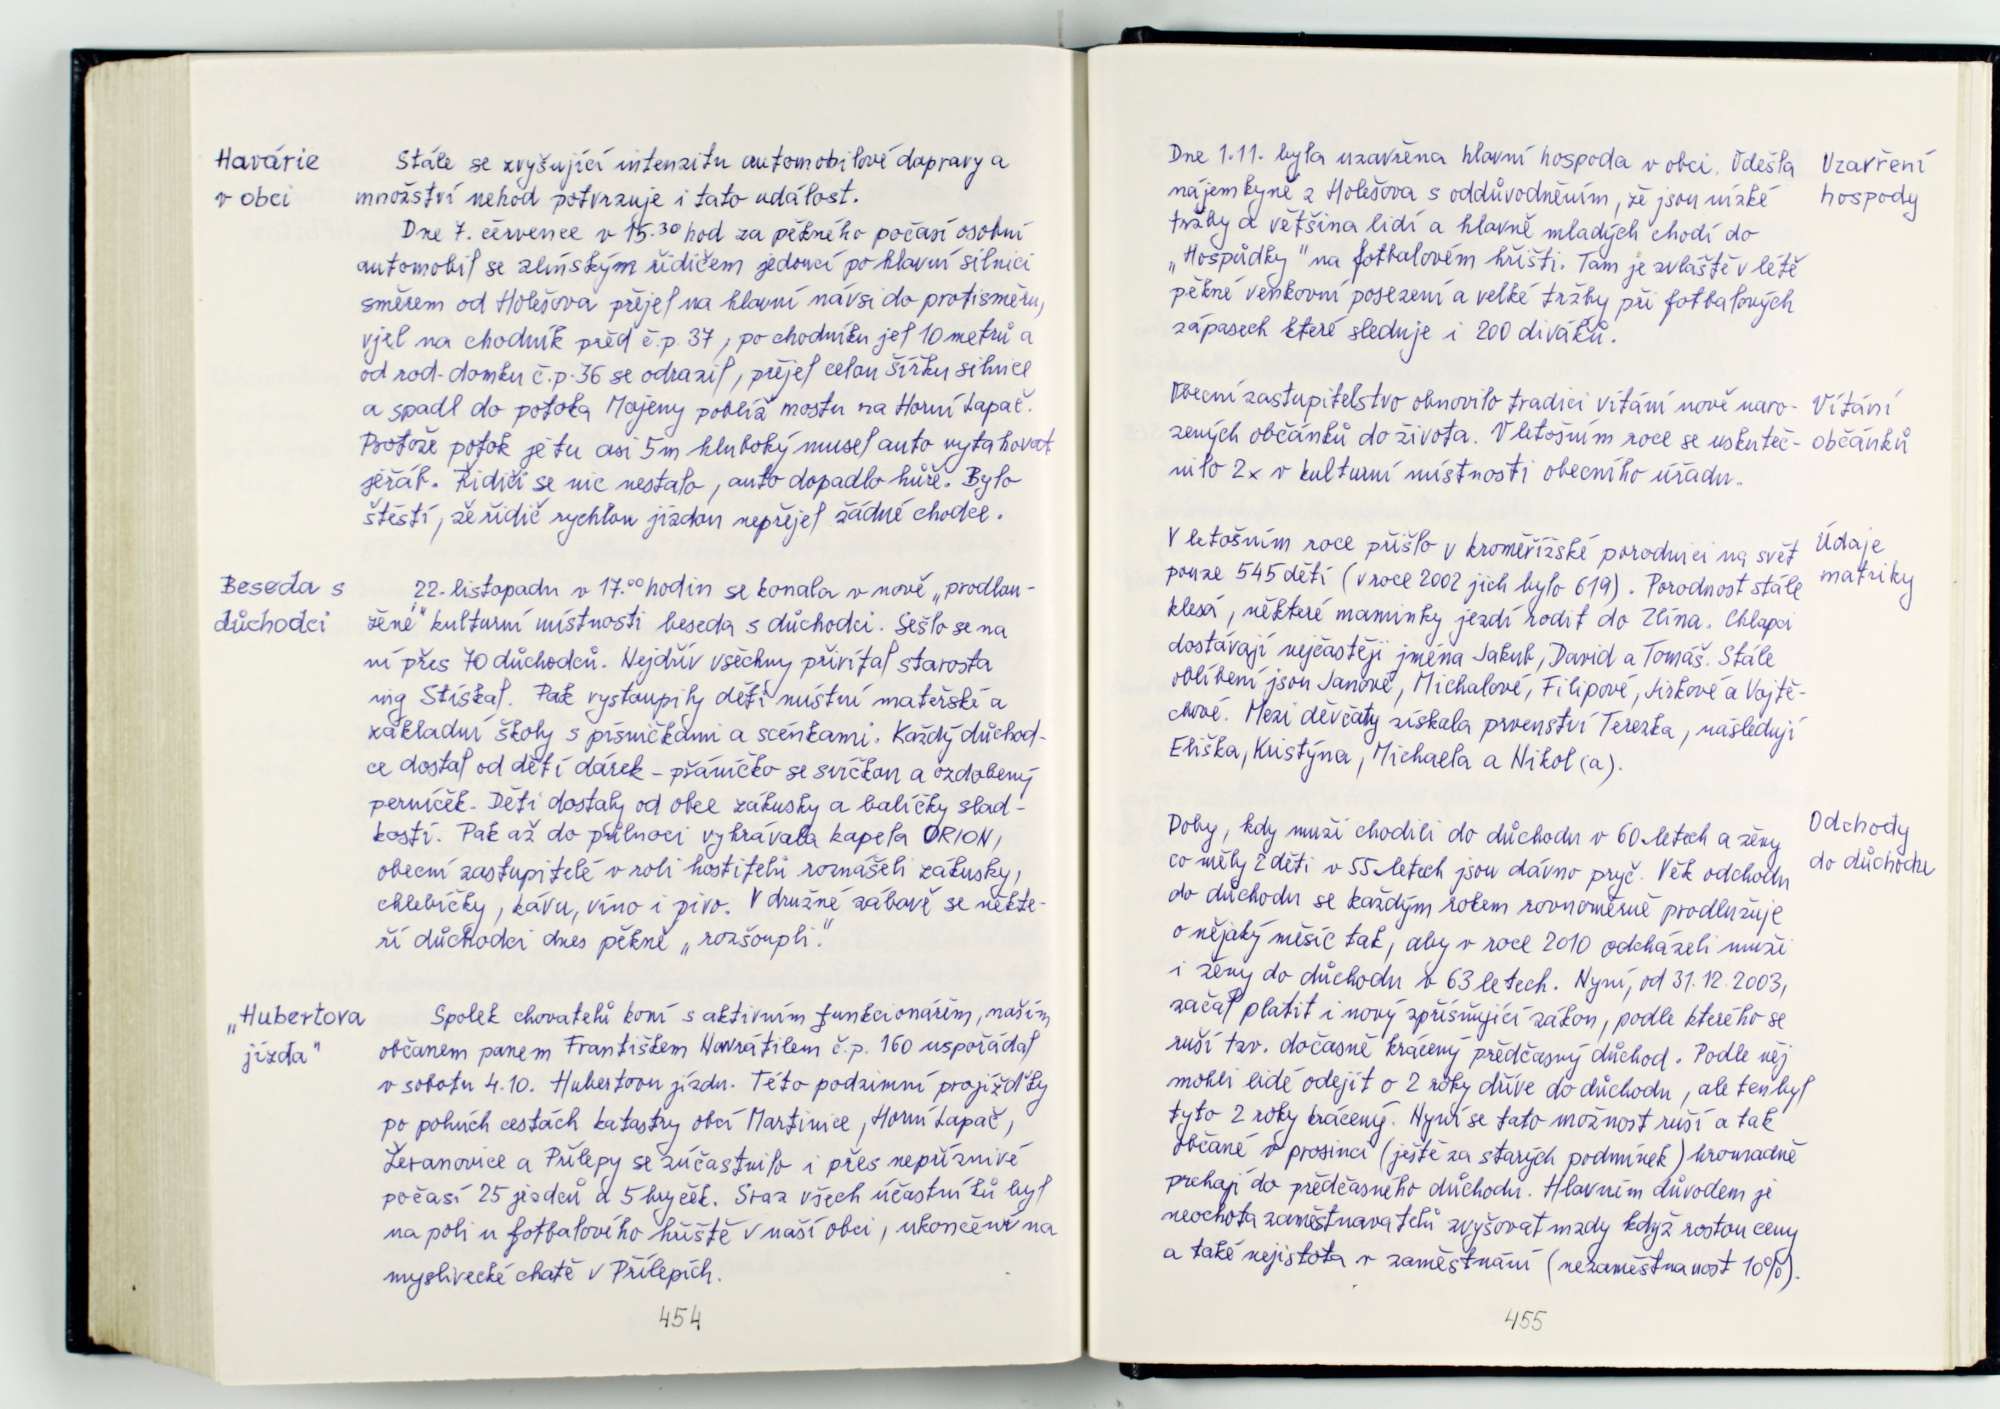 Havárie
v obci
Stále se zvyšující intenzitu automobilové dopravy a
množství nehod potvrzuje i tato událost.
Dne 7. července v 15.30 hod za pěkného počasí osobní
automobil se zlínským řidičem jedoucí po hlavní silnici
směrem od Holešova přejel na hlavní návsi do protisměru,
vjel na chodník před č.p. 37, po chodníku jel 10 metrů a
od rod. domku č.p. 36 se odrazil, přejel celou šířku silnice
a spadl do potoka Mojeny poblíž mostu na Horní Lapač.
Protože potok je tu asi 5m hluboký musel auto vytahovat
jeřáb. Řidiči se nic nestalo, auto dopadlo hůře. Bylo
štěstí, že řidič rychlou jízdou nepřejel žádné chodce.
Beseda s
důchodci
22. listopadu v 17.00 hodin se konala v nově „prodlou-
žené" kulturní místnosti beseda s důchodci. Sešlo se na
ní přes 70 důchodců. Nejdřív všechny přivítal starosta
ing Stískal. Pak vystoupily děti místní mateřské a
základní školy s písničkami a scénkami. Každý důchod-
ce dostal od dětí dárek - přáníčko se svíčkou a ozdobený
perníček. Děti dostaly od obce zákusky a balíčky slad-
kostí. Pak až do půlnoci vyhrávala kapela ORION,
obecní zastupitelé v roli hostitelů roznášeli zákusky,
chlebíčky, kávu, víno i pivo. V družné zábavě se někte-
ří důchodci dnes pěkně „rozšoupli."
„Hubertova
jízda"
Spolek chovatelů koní s aktivním funkcionářem, naším
občanem panem Františkem Navrátilem č.p. 160 uspořádal
v sobotu 4.10. Hubertovu jízdu. Této podzimní projížďky
po polních cestách katastry obcí Martinice, Horní Lapač,
Žeranovice a Přílepy se zúčastnilo i přes nepříznivé
počasí 25 jezdců a 5 bryček. Sraz všech účastníků byl
na poli u fotbalového hřiště v naší obci, ukončení na
myslivecké chatě v Přílepích.
454
Dne 1.11. byla uzavřena hlavní hospoda v obci. Odešla
nájemkyně z Holešova s oddůvodněním, že jsou nízké
tržby a většina lidí a hlavně mladých chodí do
„Hospůdky" na fotbalovém hřišti. Tam je zvláště v létě
pěkné venkovní posezení a velké tržby při fotbalových
zápasech které sleduje i 200 diváků.
Uzavření
hospody
Obecní zastupitelstvo obnovilo tradici vítání nově naro-
zených občánků do života. V letošním roce se uskuteč-
nilo 2x v kulturní místnosti obecního úřadu.
Vítání
občánků
V letošním roce přišlo v kroměřížské porodnici na svět
pouze 545 dětí (v roce 2002 jich bylo 619). Porodnost stále
klesá, některé maminky jezdí rodit do Zlína. Chlapci
dostávají nejčastěji jména Jakub, David a Tomáš. Stále
oblíbení jsou Janové, Michalové, Filipové, Jirkové a Vojtě-
chové. Mezi děvčaty získala prvenství Terezka, následují
Eliška, Kristýna, Michaela a Nikol(a).
Údaje
matriky
Doby, kdy muži chodili do důchodu v 60 letech a ženy
co měly 2 děti v 55 letech jsou dávno pryč. Věk odchodu
do důchodu se každým rokem rovnoměrně prodlužuje
o nějaký měsíc tak, aby v roce 2010 odcházeli muži
i ženy do důchodu v 63 letech. Nyní, od 31.12.2003,
začal platit i nový zpřísňující zákon, podle kterého se
ruší tzv. dočasně krácený předčasný důchod. Podle něj
mohli lidé odejít o 2 roky dříve do důchodu, ale ten byl
tyto 2 roky krácený. Nyní se tato možnost ruší a tak
občané v prosinci (ještě za starých podmínek) hromadně
prchají do předčasného důchodu. Hlavním důvodem je
neochota zaměstnavatelů zvyšovat mzdy když rostou ceny
a také nejistota v zaměstnání (nezaměstnanost 10%).
Odchody
do důchodu
455